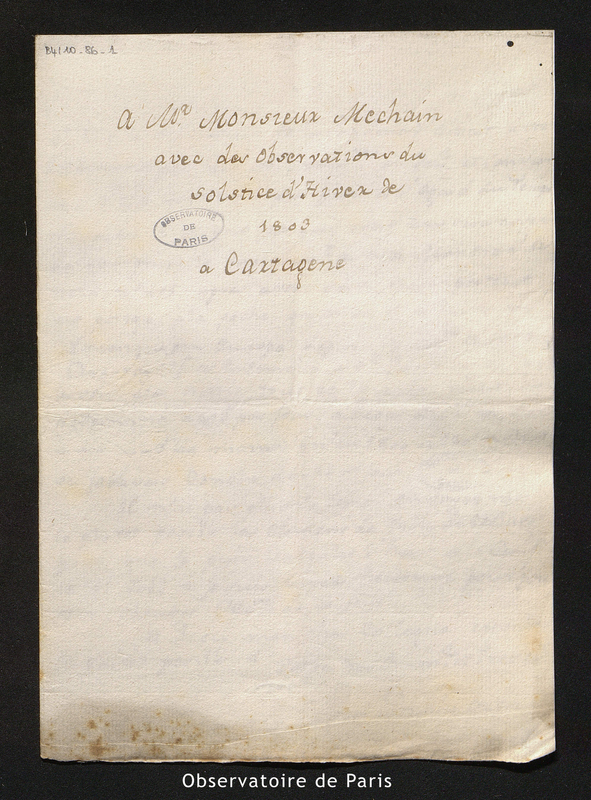 B4/10-86-1
a Mr. Monsieux Mechain
avec des Observations du
solstice d'Hivex de
1803
OBSERVATOIRE
DE
PARIS
a Caxtagene
Observatoire de Paris